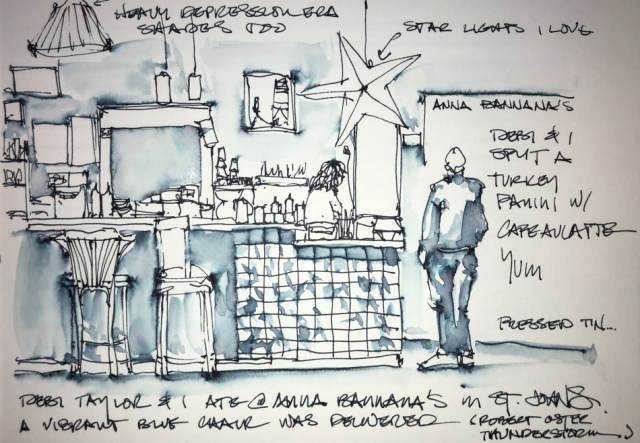 HEAVY DEPRESSION ERA
SHADES TOO
STAR LIGHTS I LOVE
ANNA BANNANA'S
DEBI & I
SPLIT A
TURKEY
PANINI W/
CAFEAULATTE
YUM
PRESSED TIN...
DEBI TAYLOR & I ATE @ ANNA BANNANA'S IN ST. JOHNS.
A VIBRANT BLUE CHAIR WAS DELIVERED (ROBERT OSTER
THUNDERSTORM...)